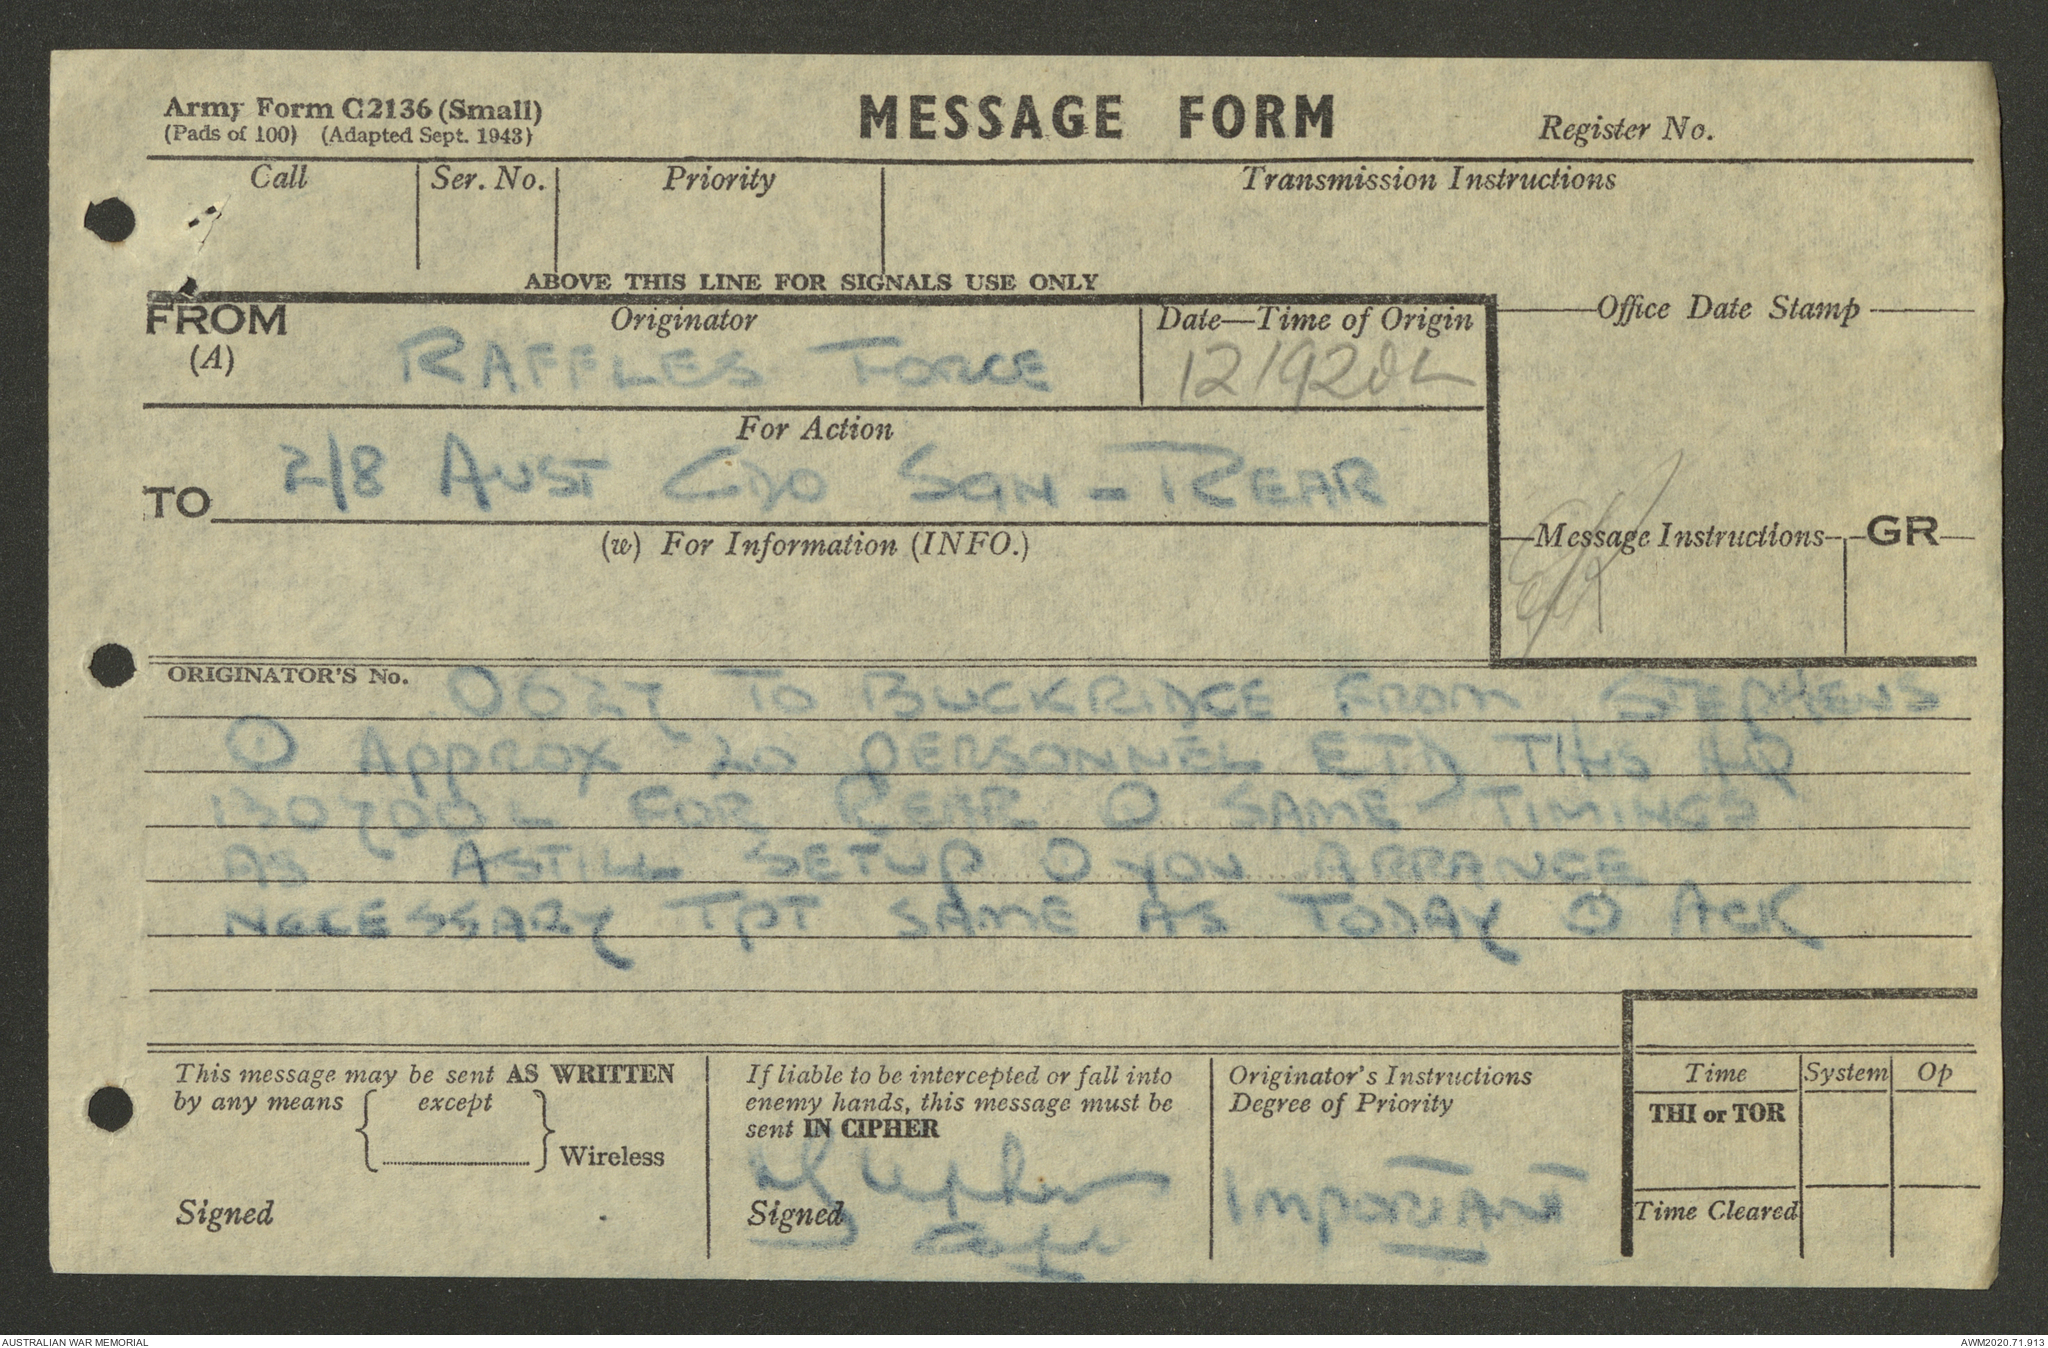 Army Form C2136 (Small)
(Pads of 100) (Adapted Sept. 1943)
MESSAGE FORM
Register No.
Call
Ser. No.
Priority
Transmission Instructions
ABOVE THIS LINE FOR SIGNALS USE ONLY
FROM
(A)
Originator
RAFFLES FORCE
Date—Time of Origin
121920L
Office Date Stamp
For Action
TO
2/8 AUST CDO SQN - REAR
(w) For Information (INFO.)
Message Instructions
GR
ORIGINATOR'S No.
TO BUCKRIDGE FROM STEPHENS
⊙ APPROX 20 PERSONNEL ETD THIS HQ
130700L FOR REAR ⊙ SAME TIMINGS
AS ASTILL SETUP ⊙ YOU ARRANGE
NECESSARY TPT SAME AS TODAY ⊙ ACK
This message may be sent AS WRITTEN
by any means except
Wireless
Signed
If liable to be intercepted or fall into
enemy hands, this message must be
sent IN CIPHER
Signed
Capt
Originator's Instructions
Degree of Priority
IMPORTANT
Time
System
Op
THI or TOR
Time Cleared
AUSTRALIAN WAR MEMORIAL
AWM2020.71.913